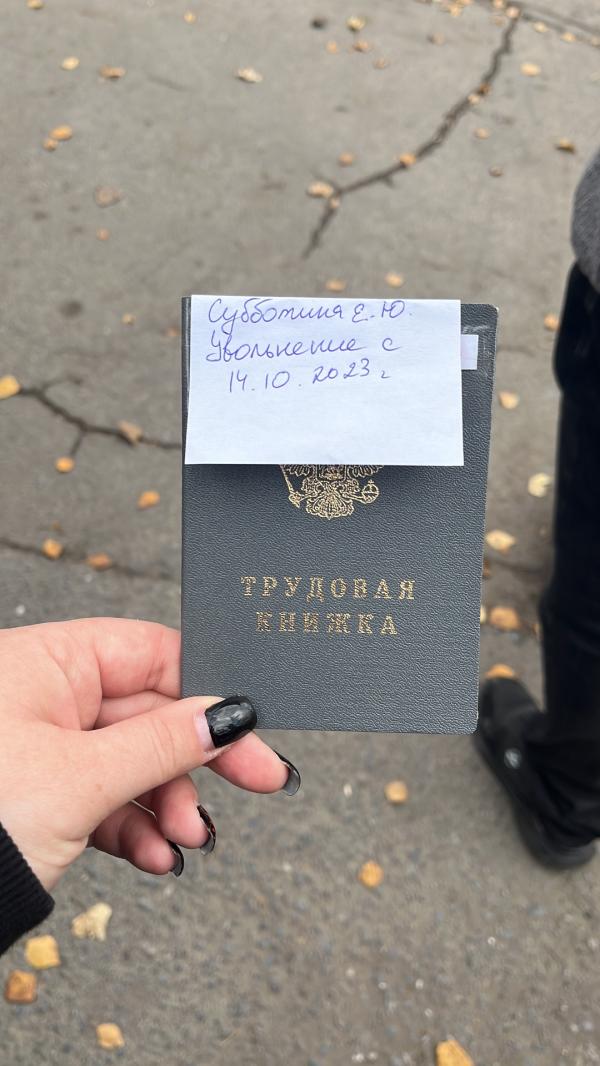 Субботина Е.Ю.
Увольнение с
14.10.2023 г
ТРУДОВАЯ
КНИЖКА